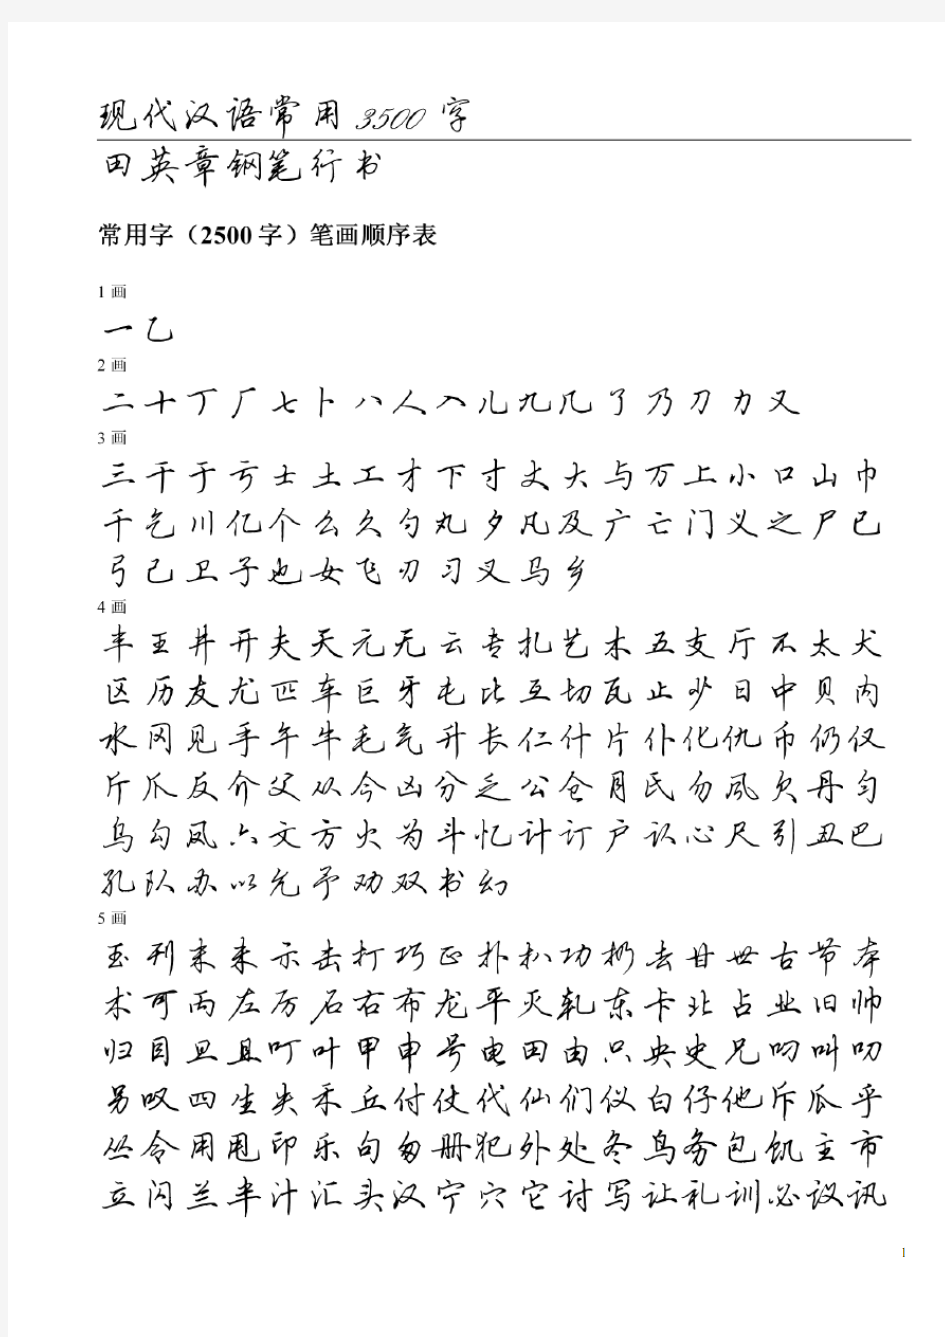 现代汉语常用3500字
田英章钢笔行书
常用字（2500字）笔画顺序表
1画
一乙
2画
二十丁厂七卜八人入儿九几了乃刀力又
3画
三干于亏士土工才下寸丈大与万上小口山巾
千乞川亿个么久勺丸夕凡及广亡门义之尸已
弓己卫子也女飞刃习叉马乡
4画
丰王井开夫天元无云专扎艺木五支厅不太犬
区历友尤匹车巨牙屯比互切瓦止少日中贝内
水冈见手午牛毛气升长仁什片仆化仇币仍仅
斤爪反介父从今凶分乏公仓月氏勿风欠丹匀
乌勾凤六文方火为斗忆计订户认心尺引丑巴
孔队办以允予劝双书幻
5画
玉刊末未示击打巧正扑扒功扔去甘世古节本
术可丙左厉石右布龙平灭轧东卡北占业旧帅
归目旦且叮叶甲申号电田由只央史兄叼叫叨
另叹四生失禾丘付仗代仙们仪白仔他斥瓜乎
丛令用甩印乐句匆册犯外处冬鸟务包饥主市
立闪兰半汁汇头汉宁穴它讨写让礼训必议讯
1